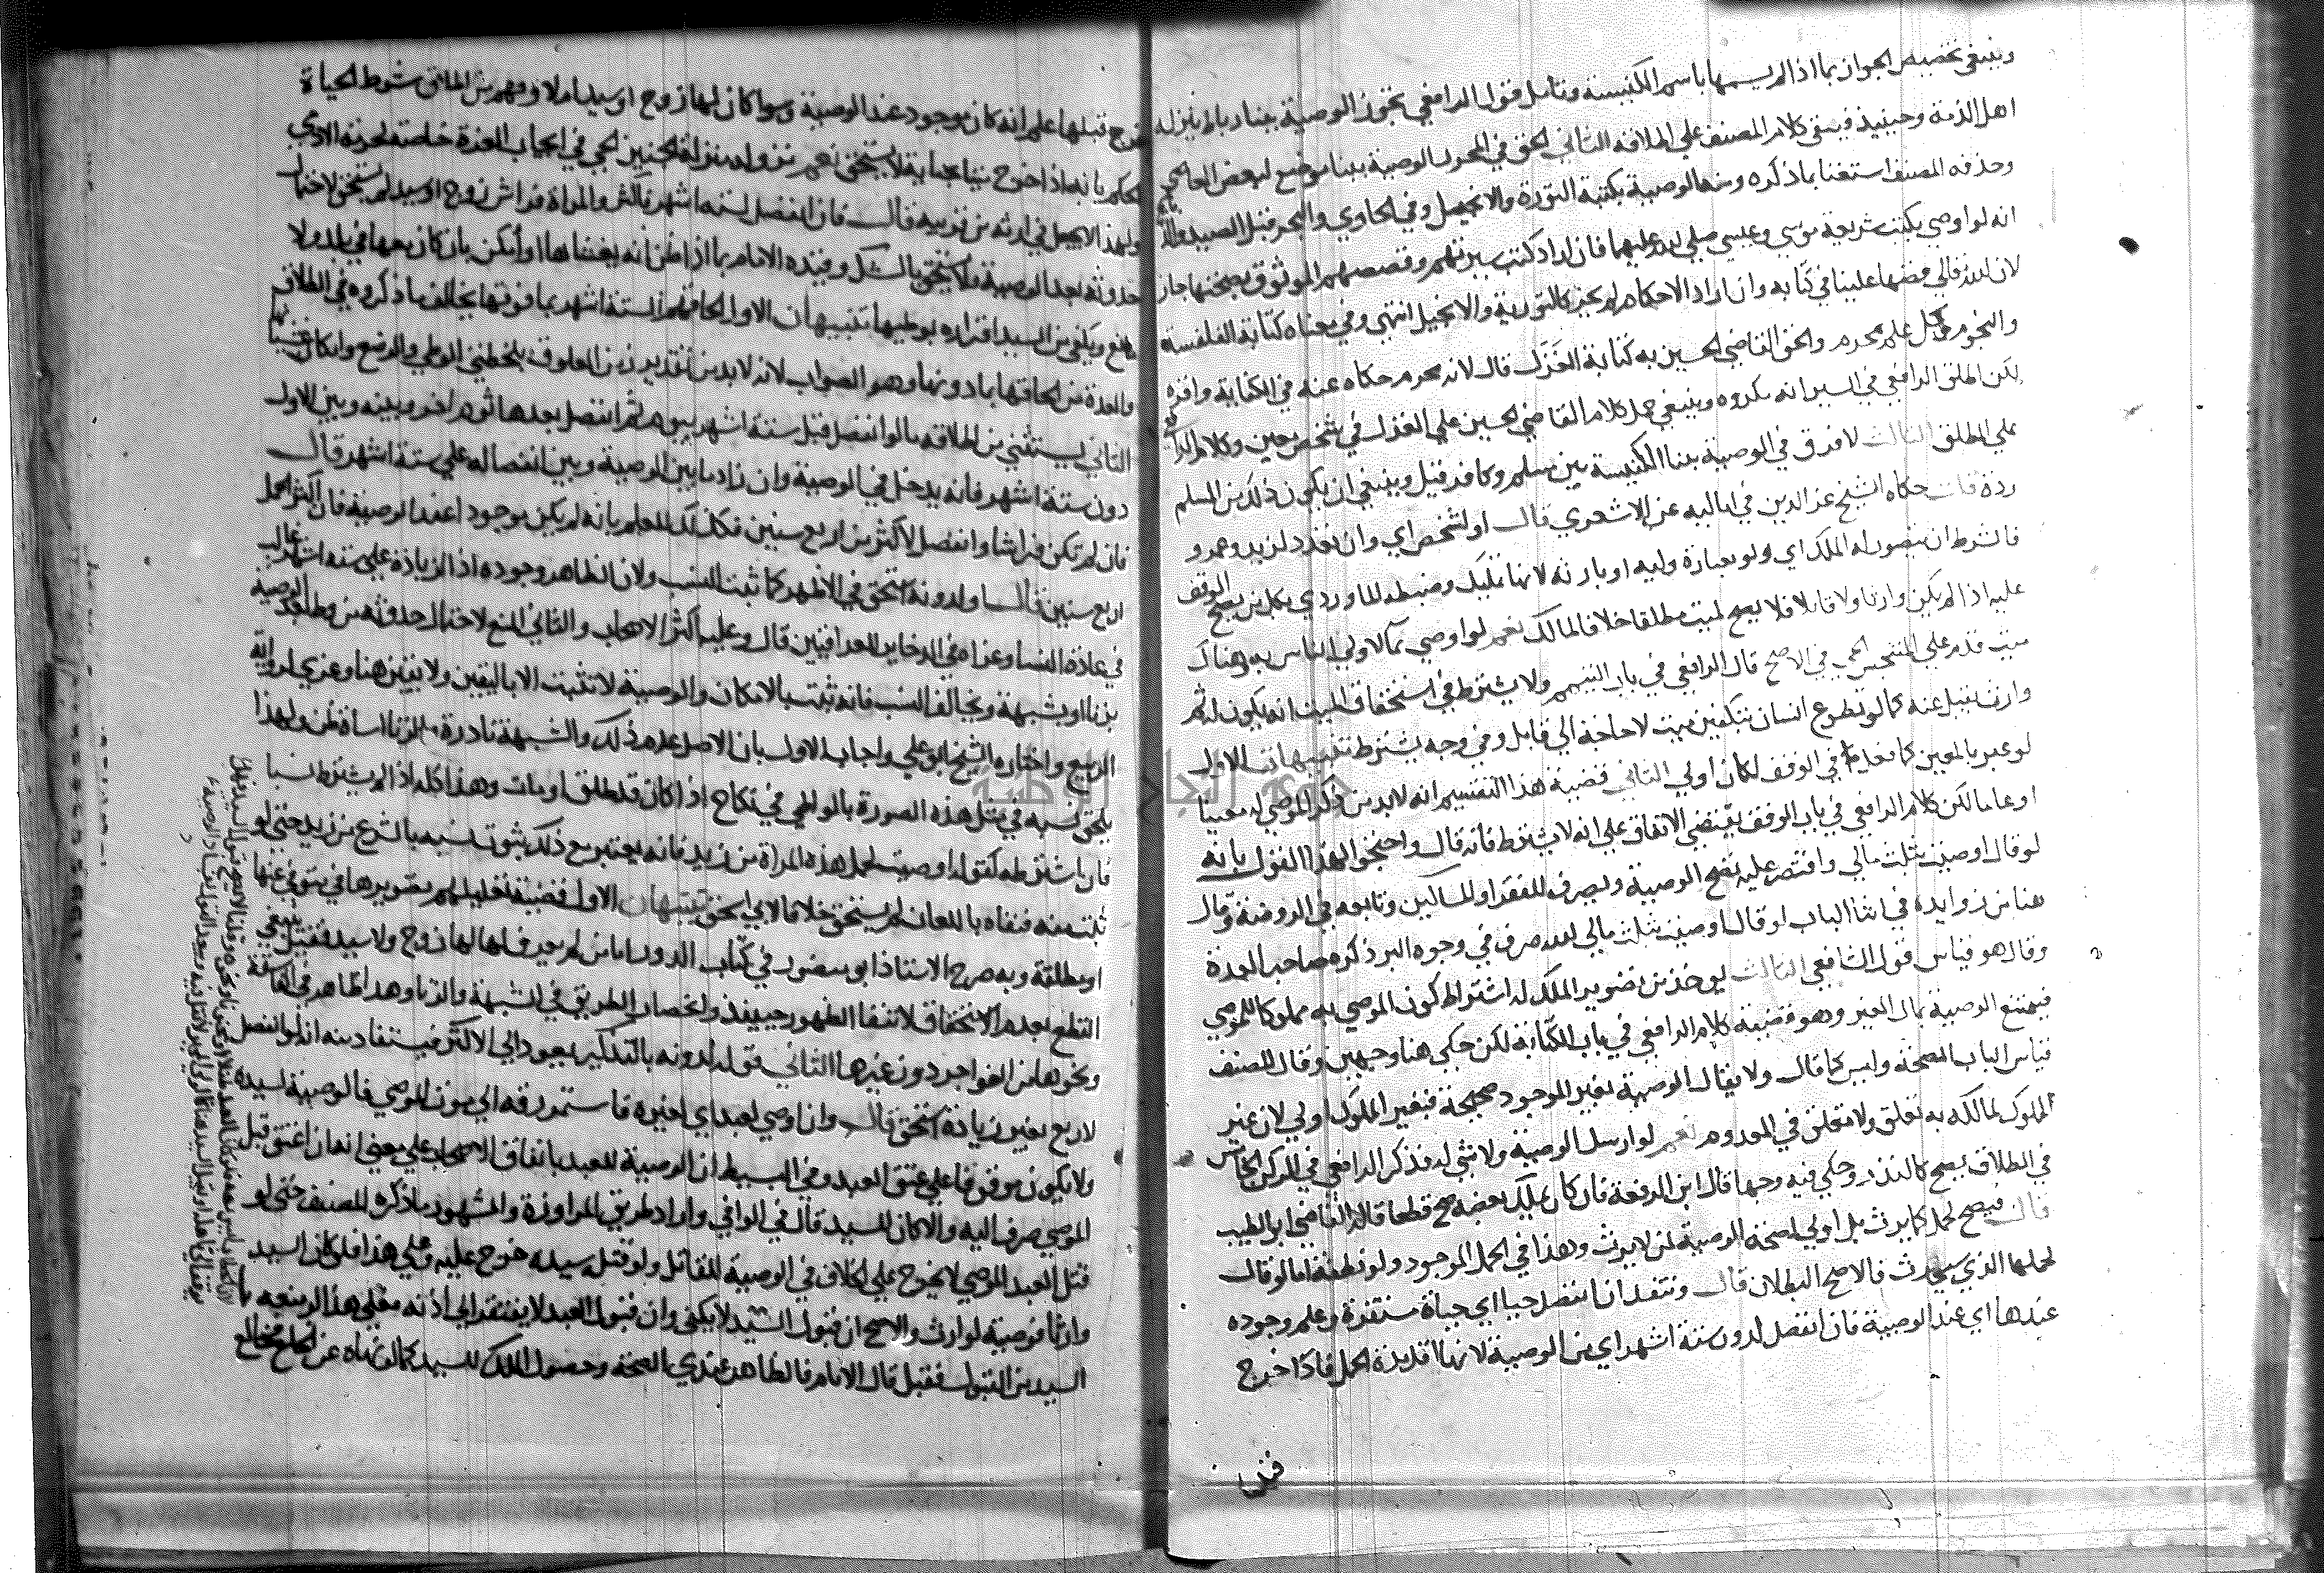 وينبغي تخصيص الجواز بما اذا لم يسمها باسم الكنيسة وتامل قول الرافعي تجوز الوصية ببناء رباط ينزله
اهل الذمة وحينيذ فيبقى كلام المصنف علي اطلاقه الثاني الحق في المحرر الوصية ببنا موضع لبعض المعاصي
وحذفه المصنف استغنا بما ذكره ومنه الوصية بكتبة التورة والانجيل وفي الحاوي والبحر قبيل الصيد
انه لو اوصي بكتب شريعة موسي وعيسي صلي الله عليهما فان اراد كتب سيرتهم وقصصهم الموثوق بصحتها جاز
لان الله تعالي قصها علينا في كتابه وان اراد الاحكام لم يجز كالتورية والانجيل انتهي وفي معناه كتابة الفلسفة
والنجوم وكل علم محرم والحق القاضي الحسين به كتابة الغزل قال لانه محرم حكاه عنه في الكفاية واقره
لكن اطلق الرافعي في السير انه مكروه وينبغي حمل كلام القاضي الحسين علي الغزل في شخص معين وكلام
علي المطلق الثالث لا فرق في الوصية ببنا الكنيسة بين مسلم وكافر قيل وينبغي ان يكون ذلك من المسلم
ردة قلت حكاه الشيخ عز الدين في اماليه عن الاشعري قال او لشخص اي وان تعدد لزيد وعمرو
فالشرط ان يتصور له الملك اي ولو بعبارة وليه او بارثه لانها تمليك وضبطه الماوردي بكل من يصح الوقف
عليه اذا لم يكن وارثا ولا قاتلا فلا يصح لميت مطلقا خلافا لمالك نعم لو اوصي بما لاولي الناس به وهناك
ميت قدم علي المتنجس الحي في الاصح قال الرافعي في باب التيمم ولا يشترط في استحقاق الميت انه يكون له ثم
وارث يقبل عنه كما لو تطوع انسان بتكفين ميت لا حاجة الي قابل وفي وجه يشترط تنبيهات الاول
لو عبر بالمعين كما فعل في الوقف لكان اولي الثاني قضية هذا التقسيم انه لا بد من ذكر الموصي له معينا
او عاما لكن كلام الرافعي في باب الوقف يقتضي الاتفاق علي انه لا يشترط فانه قال واحتجوا لهذا القول بانه
لو قال اوصيت بثلث مالي واقتصر عليه تصح الوصية ويصرف للفقراو المساكين وتابعه في الروضة وقال
هنا من زوايده في اثنا الباب لو قال اوصيت بثلث مالي لله صرف في وجوه البر ذكره صاحب العدة
وقال هو قياس قول الشافعي الثالث يوخذ من تصوير الملك له اشتراط كون الموصي به مملوكا للموصي
فيمتنع الوصية بمال الغير وهو قضية كلام الرافعي في باب الكتابة لكن حكي هنا وجهين وقال المصنف
قياس الباب الصحة وليس كما قال ولا يقال الوصية بغير الموجود صحيحة فبغير المملوك اولي لان غير
المملوك لمالكه به تعلق ولا متعلق في المعدوم نعم لو ارسل الوصية ولا شي له فذكر الرافعي في الركن الخامس
في الطلاق يصح كالنذر وحكي فيه وجها قال ابن الرفعة فان كان يملك بعضه صح قطعا قاله القاضي ابو الطيب
قال فيصح لحمل كما يرث بل اولي لصحة الوصية لمن لا يرث وهذا في الحمل الموجود ولو نطفة اما لو قال
لحملها الذي سيحدث فالاصح البطلان قال وتنفذ ان انفصل حيا اي حياة مستقرة وعلم وجوده
عندها اي عند الوصية فان انفصل لدون ستة اشهر اي من الوصية لانها اقل مدة الحمل فاذا خرج
قبلها علم انه كان موجود عند الوصية وسوا كان لها زوج او سيد ام لا وفهم من اطلاق شرط الحياة
الحكم بانه اذا خرج ميتا بجناية لا يستحق نعم نزوله منزلة الجنين الحي في ايجاب الغرة خاصة لحرمة الادمي
ولهذا لا يجعل في ارثه من قريبه قال فان انفصل لستة اشهر فاكثر والمراة فراش زوج او سيد لم يستحق لاحتمال
حدوثه بعد الوصية ولا يستحق بالشك وقيده الامام بما اذا ظن انه يغشاها او امكن بان كان معها في بلد ولا
مانع ويكفي من السيد اقراره بوطيها تنبيهان الاول الحاقهم الستة اشهر بما فوقها يخالف ما ذكروه في الطلاق
والعدة من الحاقها بما دونها وهو الصواب لانه لا بد من تقدير زمن العلوق بلحظتي الوطي والوضع
الثاني يستثني من اطلاقه ما لو انفصل قبل ستة اشهر بيوم ثم انفصل بعدها توم اخر وبينه وبين الاول
دون ستة اشهر فانه يدخل في الوصية وان زاد ما بين الوصية وبين انفصاله علي ستة اشهر قال
فان لم تكن فراشا وانفصل لاكثر من اربع سنين فكذلك للعلم بانه لم يكن موجودا عند الوصية فان اكثر الحمل
اربع سنين قال او لدونه استحق في الاظهر كما ثبت النسب ولان الظاهر وجوده اذ الزيادة علي ستة اشهر غالب
في عادة النسا وعزاه في الذخاير للعراقيين قال وعليه اكثر الاصحاب والثاني المنع لاحتمال حدوثه من وطي بعد الوصية
بزنا او شبهة ويخالف النسب فانه يثبت بالامكان والوصية لا تثبت الا باليقين ولا يقين هنا وعزي لرواية
الربيع واختاره الشيخ ابو علي واجاب الاول بان الاصل عدم ذلك والشبهة نادرة والزنا اساة ظن ولهذا
يلحق نسبه في مثل هذه الصورة بالواطي في نكاح اذا كان قد طلق او مات وهذا كله اذا لم يشترط نسبا
فان اشترطه كقوله اوصيت لحمل هذه المراة من زيد فانه يعتبر مع ذلك ثبوت نسبه بالشرع من زيد حتي لو
ثبت منه فنفاه باللعان لم يستحق خلافا لابي اسحق تنبيهان الاول قضية تعليلهم تصويرها في متوفي عنها
او مطلقة وبه صرح الاستاذ ابو منصور في كتاب الدور اما من لم يعرف لها لها زوج ولا سيد فقيل ينبغي
القطع بعدم الاستحقاق لانتفا الظهور حينيذ وانحصار الطريق في الشبهة والزنا وهذا ظاهر في
ونحوها من الفواجر دون غيرها الثاني قوله لدونه بالتذكير يعود الي الاكثر فيستفاد منه انه لو انفصل
لاربع بغير زيادة استحق قال وان اوصي لعبد اي لغيره فاستمر رقه الي موت الموصي فالوصية لسيده
ولا يكون موقوفا علي عتق العبد وفي البسيط ان الوصية للعبد باتفاق الاصحاب علي معني انه ان اعتق قبل
الموصي صرف اليه والا كان للسيد قال في الوافي واراد طريق المراوزة والمشهور ما ذكره المصنف حتي لو
قتل العبد الموصي لا يخرج علي الخلاف في الوصية للقاتل ولو قتله سيده خرج عليه وعلي هذا فلو كان السيد
وارثا فوصية لوارث والاصح ان قبول السيد لا يكفي وان قبول العبد لا يفتقر الي اذنه فعلي هذا لو منعه
السيد من القبول فقبل قال الامام فالظاهر عندي الصحة وحصول الملك للسيد كما لو نهاه عن الخلع فخالع